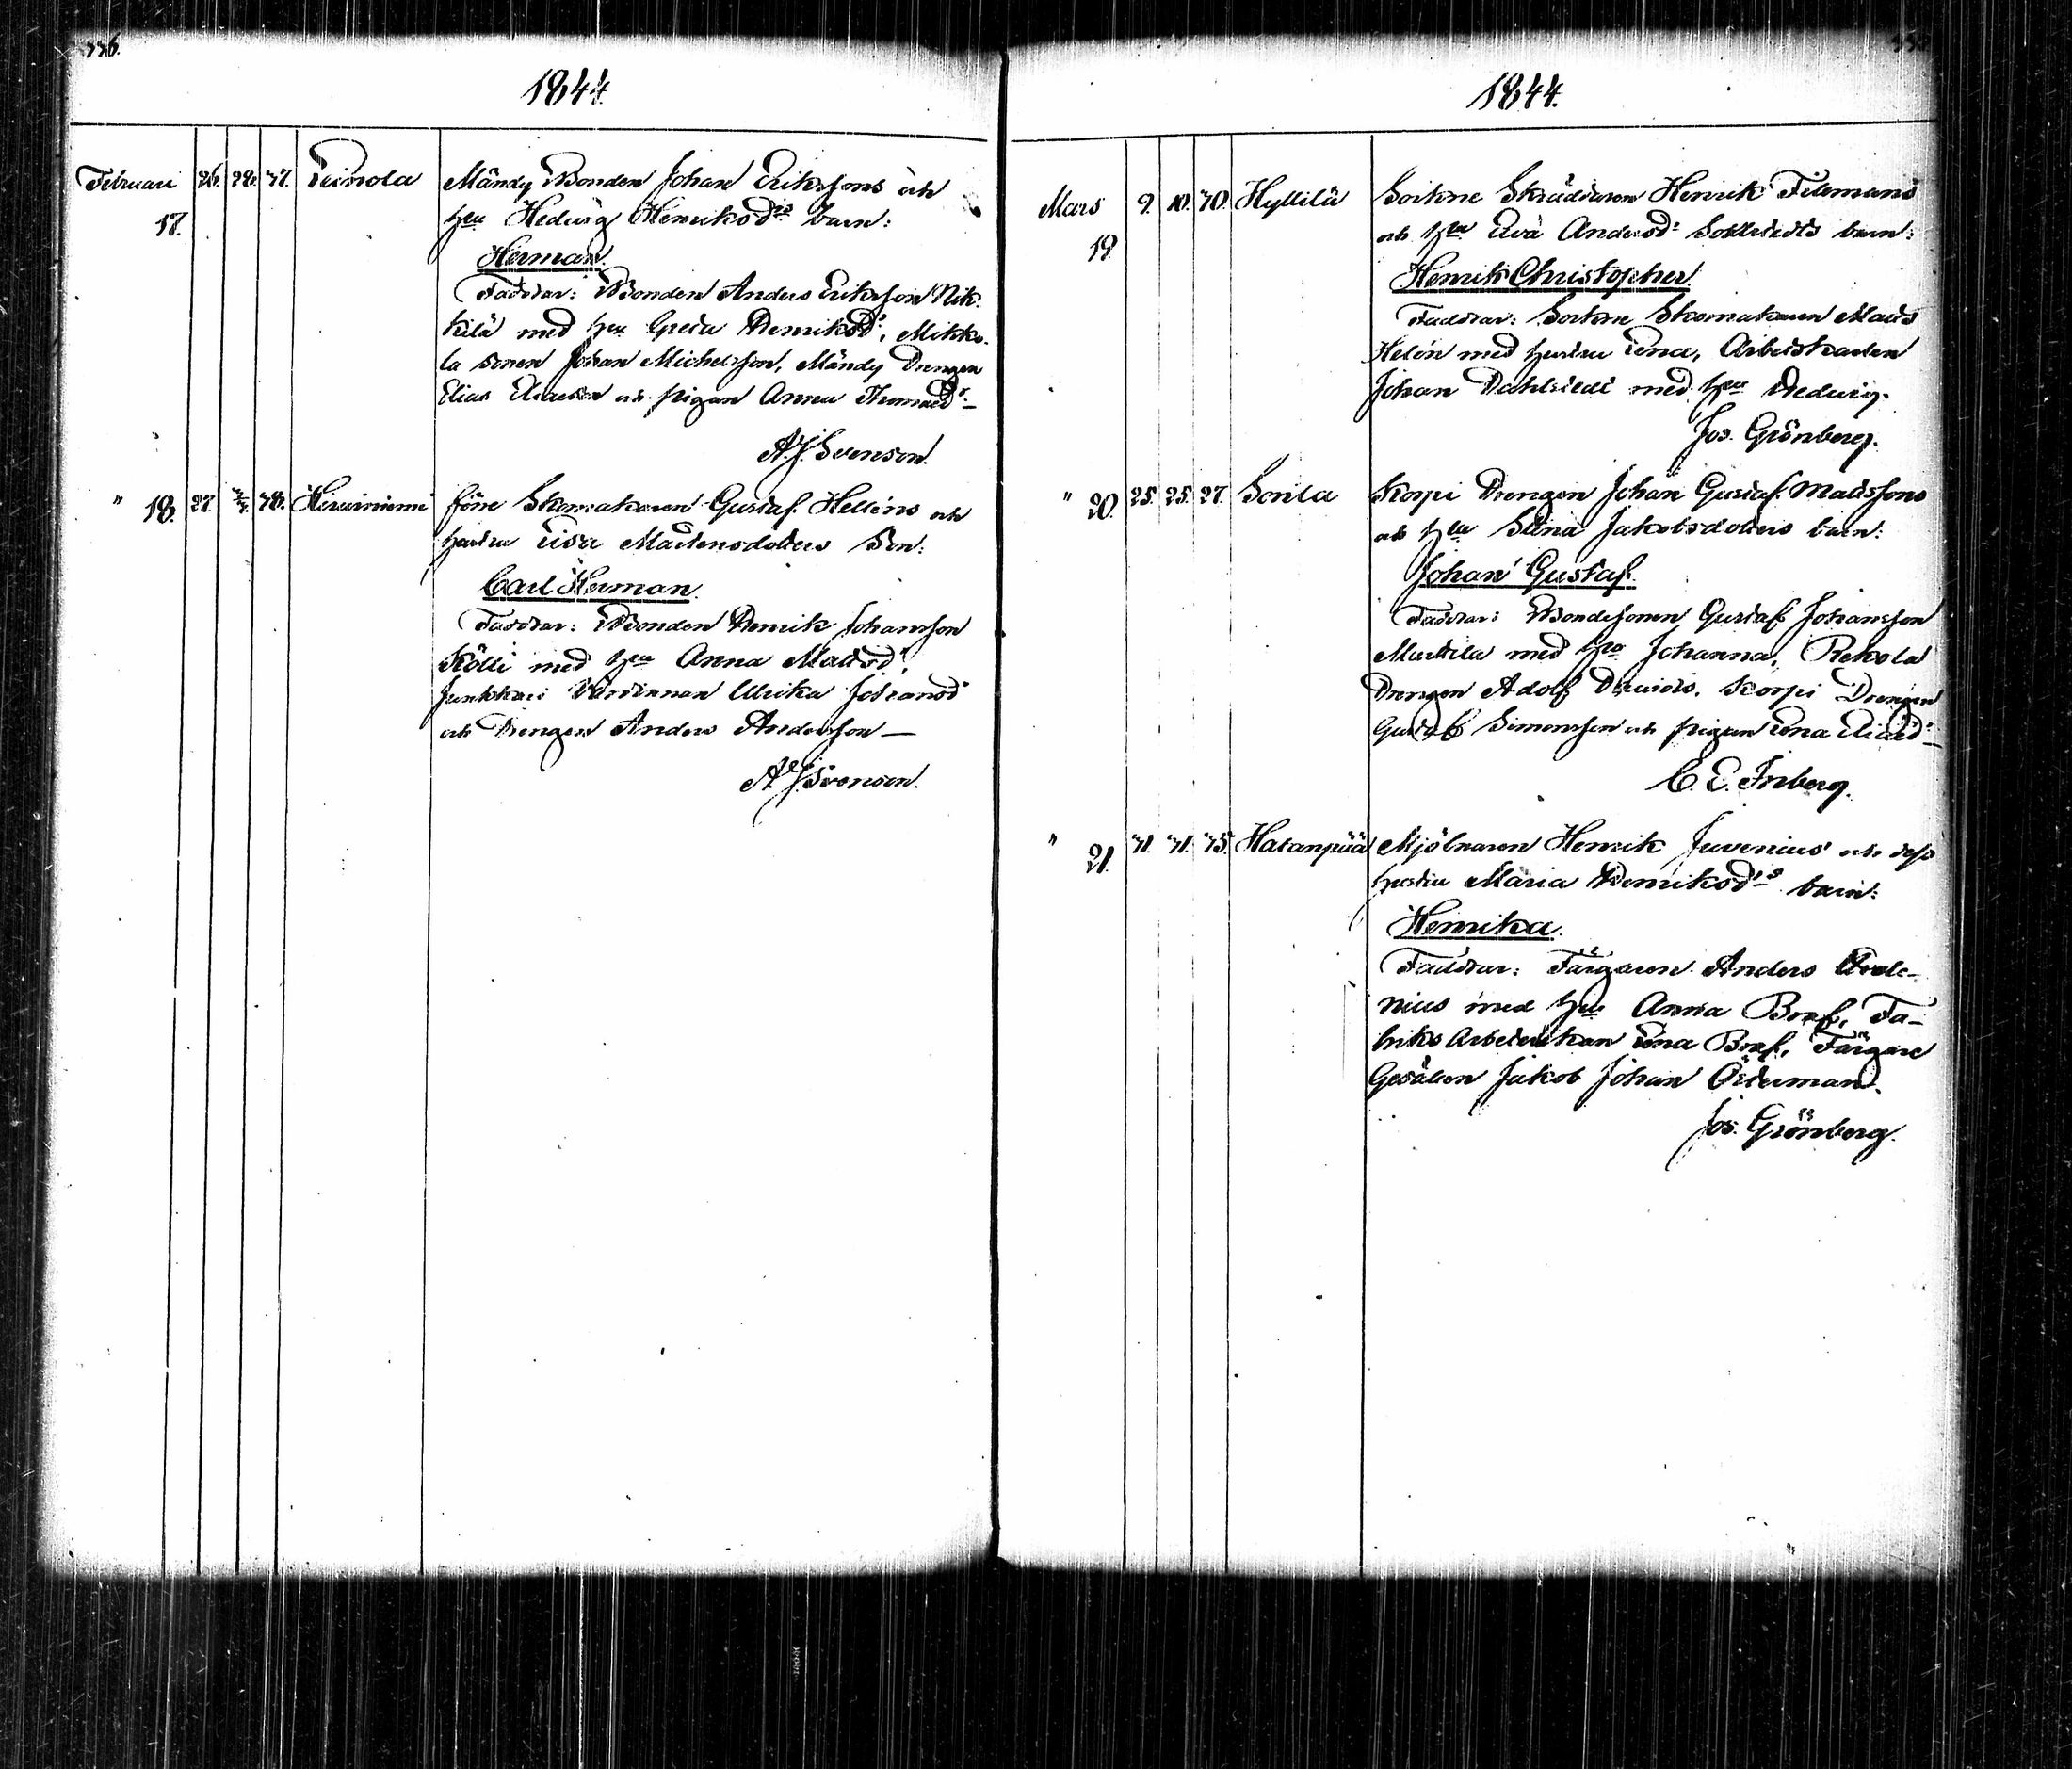 336.
1844.
Februari 26. 28. 47. Leinola Mändy Bonden Johan Erikssons och
17. hru Hedwig Henriksd:rs barn:
Herman.
Faddrar: Bonden Anders Eriksson Nik-
kilä med hru Greta Henriksd:r, Mikko-
la sonen Johan Michelsson, Mändy Drengen
Elias Eliasson och pigan Anna Thomasd:r—
A. J. Svenson.
" 18. 27. 48. Hirviniemi före Skomakaren Gustaf Helléns och
hustru Lisa Mårtensdotters Son:
Carl Herman.
Faddrar: Bonden Henrik Johansson
Kölli med hru Anna Mattsd:r,
Junkkari Värdinnan Ulrika Johansd:r
och Drengen Anders Andersson—
A. J. Svenson.
1844.
Mars 9. 10. 70. Hyllilä Sockne Skräddaren Henrik Tillmans
19 och hru Eva Andersd:r barn:
Henrik Christopher.
Faddrar: Sockne Skomakaren Matts
Helén med hustru Lena, Arbetskarlen
Johan Dahlstedt med hru Hedwig.
Jos. Grönberg.
" 20. 25. 25. 27. Sontla Korpi Drengen Johan Gustaf Mattssons
och hru Stina Jakobsdotters barn:
Johan Gustaf.
Faddrar: Bondesonen Gustaf Johansson
Marttila med hru Johanna, Rekola
Drengen Adolf Davids. Korpi Drengen
Gustaf Simonsson och pigan Lena Eliaed:r—
C. E. Inberg.
" 21. 71. 71. 75. Hatanpää Mjölnaren Henrik Juvenius och dess
hustru Maria Henriksd:rs barn:
Henrika.
Faddrar: Färgaren Anders
nius med hru Anna Braf, Fa-
briks Arbeterskan Lena Braf, Färgare
Gesällen Jakob Johan Österman.
Jos. Grönberg.